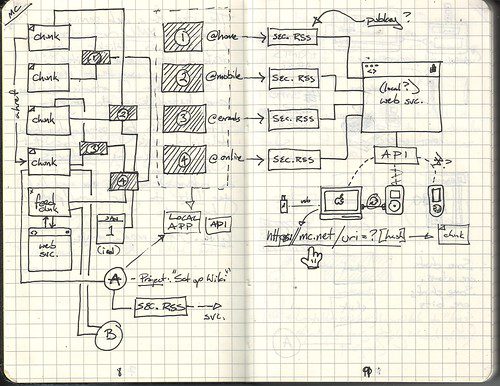 MC
chunk
chunk
chunk
chunk
feed
chunk
web
svc.
1
2
3
4
1
(ical)
1 @home
2 @mobile
3 @errands
4 @online
LOCAL
APP
API
A - Project: "Set up Wiki"
SEC. RSS
svc.
B
8
pubkey?
SEC. RSS
SEC. RSS
SEC. RSS
SEC. RSS
<>
(local?)
web svc.
API
https://mc.net/uri=?[hash]
chunk